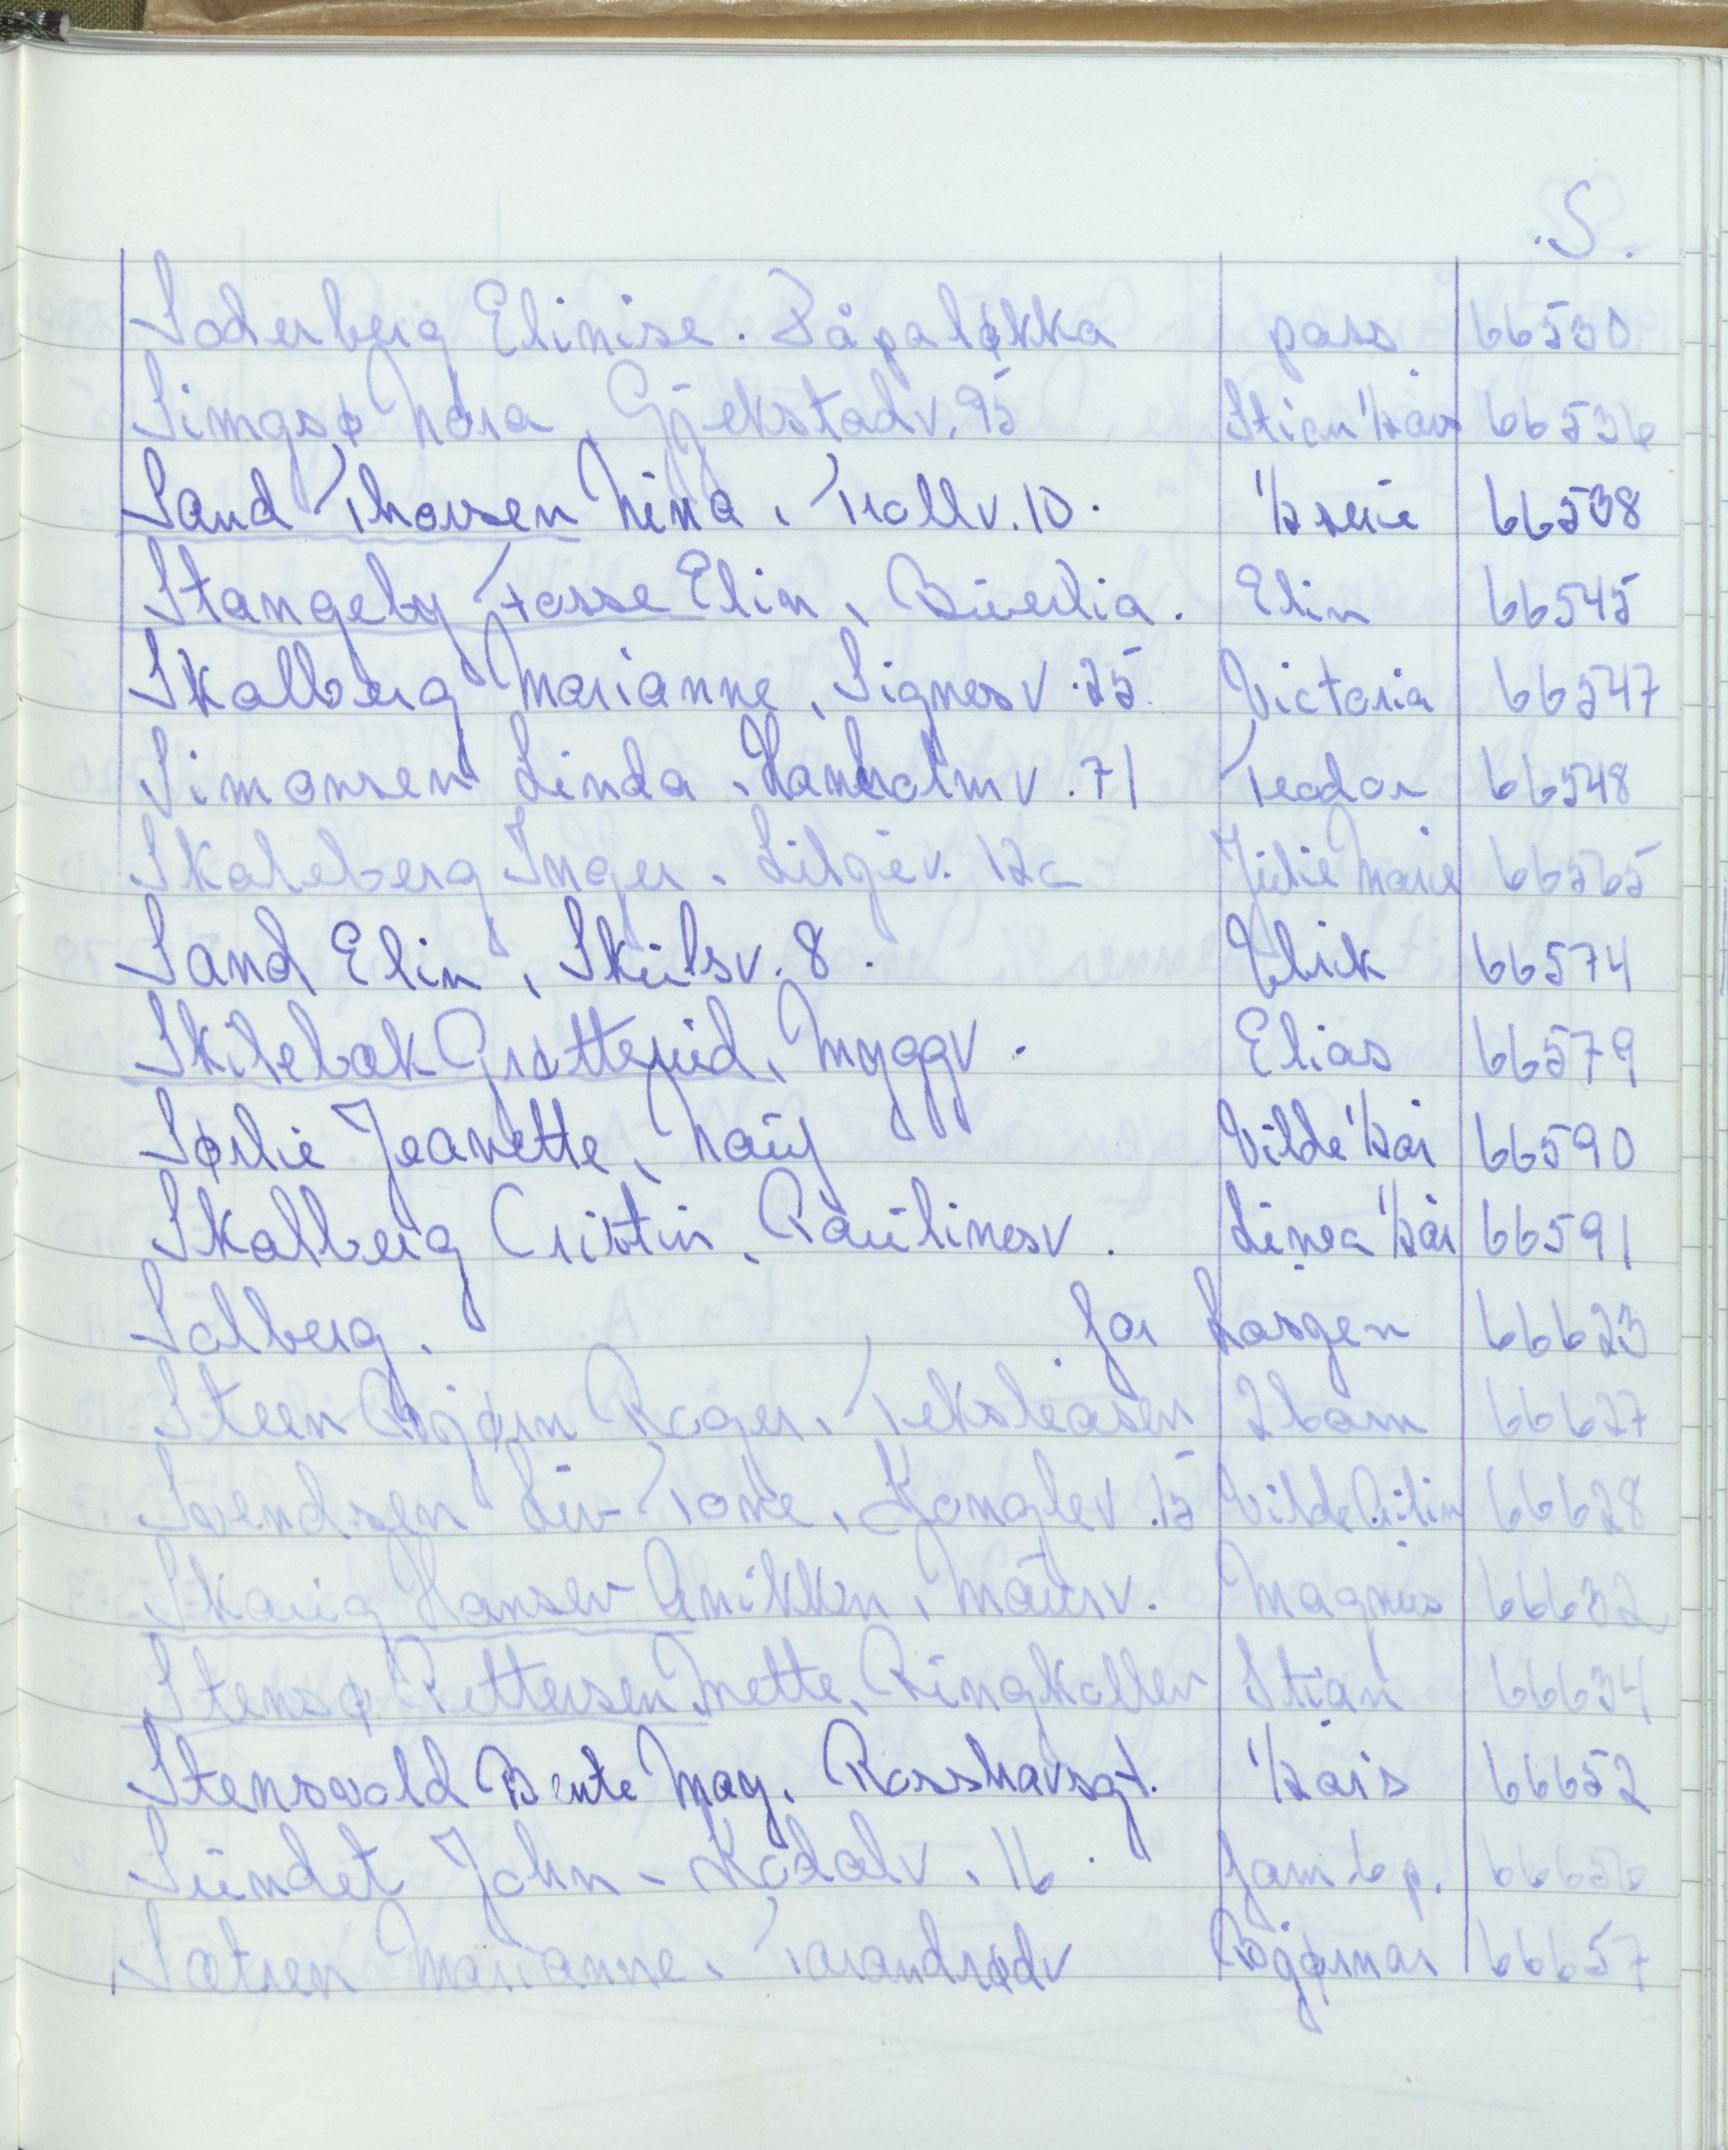 .S.
Soderberg Elinise. Såpaløkka pass 66530
Simgsø Nora, Gjekstadv. 95 Stian ½ års 66536
Sand Thorsen Nina, Trollv. 10. ½ serie 66538
Stangeby Fosse Elin, Buerlia. Elin 66545
Skalberg Marianne, Signesv. 25. Victoria 66547
Simonsen Linda, Hamholmv. 71 Teodor 66548
Skaleberg Inger. Liljev. 12c Julie Marie 66565
Sand Elin, Skulsv. 8. Ulrik 66574
Skilebak Grøtterud, Myggv. Elias 66579
Sørlie Jeanette, Nauj Vilde ½ år 66590
Skalberg Cristin, Paulinesv. Linea ½ år 66591
Solberg. for Lasgen 66623
Steen Bjørn Roger, Teksleåsen 2 barn 66627
Svendsen Liv-Tone, Konglev. 15 Vilde 66628
Skarig Hansen Anikken, Maurv. Magnus 66632
Stensø Pettersen Mette, Ringkollen Stian 66634
Stensvold Bente May. Rosshavsgt. ½ års 66652
Sundet John - Kodalv. 16. fam. 6 p. 66656
Sætren Marianne, Tarandrødv Bjørnar 66657